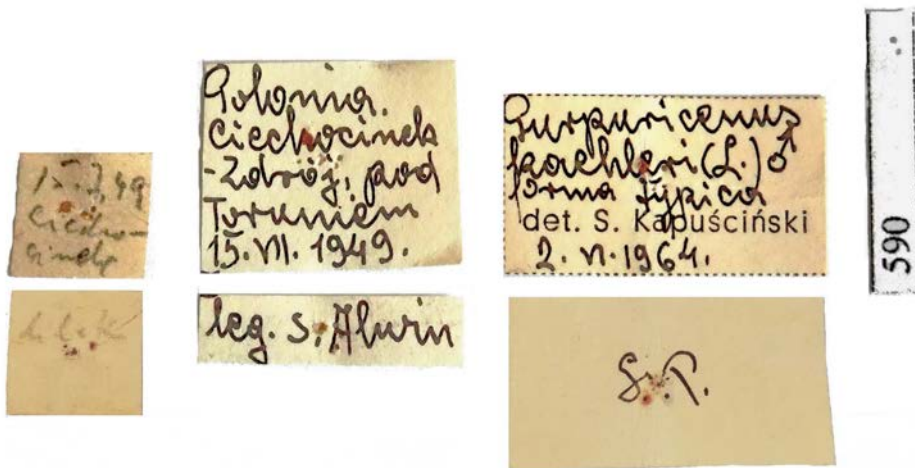 15.7.49
Ciecho-
cinek
Polonia.
Ciechocinek
-Zdrój, pod
Toruniem
15.VII.1949.
leg. S. Alwin
Purpuricenus
kaehleri (L.) ♂
forma typica
det. S. Kapuściński
2.VI.1964.
S.P.
590